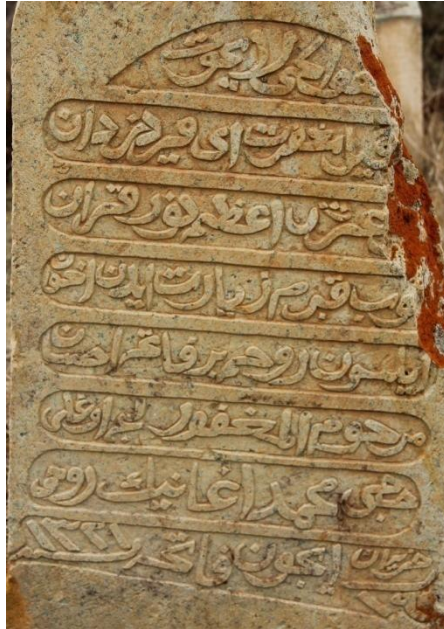 هو الحى لا يموت
مغفرت اى يزدان
عرش اعظم نور قران
قبرم زيارت ايدن اخوان
ايلسون روحمه بر فاتحه احسان
مرحوم المغفور اوغلى
محمد اغا نيك روحى
ايچون فاتحه ١٣٢١